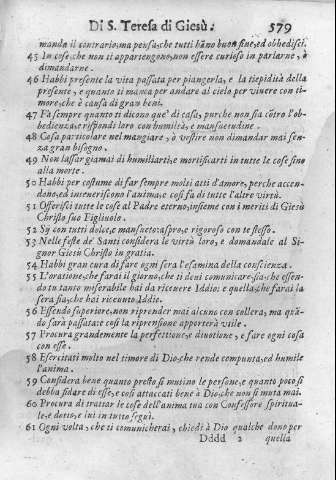 Di S. Teresa di Giesù. 579
manda il contrario; ma pensa, che tutti hãno buon fine, ed obbedisci.
45 In cose, che non ti appartengono, non essere curioso in parlarne, ò
dimandarne.
46 Habbi presente la vita passata per piangerla, e la tiepidità della
presente, e quanto ti manca per andare al cielo per viuere con ti-
more, che è causa di gran beni.
47 Fà sempre quanto ti dicono que' di casa, purche non sia cõtro l'ob-
bedienza, e rispondi loro con humiltà, e mansuetudine.
48 Cosa particolare nel mangiare, ò vestire non dimandar mai sen-
za gran bisogno.
49 Non lassar giamai di humiliarti, e mortificarti in tutte le cose sino
alla morte.
50 Habbi per costume di far sempre molti atti d'amore, perche accen-
dono, ed inteneriscono l'anima, e così fà di tutte l'altre virtù.
51 Offerisci tutte le cose al Padre eterno, insieme con i meriti di Giesù
Christo suo Figliuolo.
52 Sij con tutti dolce, e mansueto: aspro, e rigoroso con te stesso.
53 Nelle feste de' Santi considera le virtù loro, e domandale al Si-
gnor Giesù Christo in gratia.
54 Habbi gran cura di fare ogni sera l'esamina della conscienza.
55 L'oratione, che farai il giorno, che ti deui communicare sia, che essen-
do tu tanto miserabile hai da riceuere Iddio: e quella, che farai la
sera sia, che hai riceuuto Iddio.
56 Essendo superiore, non riprender mai alcuno con collera, ma quã-
do sarà passata: e così la riprensione apporterà vtile.
57 Procura grandemente la perfettione, e diuotione, e fare ogni cosa
con esse.
58 Esercitati molto nel timore di Dio, che rende compunta, ed humile
l'anima.
59 Considera bene quanto presto si mutino le persone, e quanto poco si
debba fidare di esse, e così attaccati bene à Dio, che non si muta mai.
60 Procura di trattar le cose dell'anima tua con Confessore spiritua-
le, e dotto, e lui in tutto segui.
61 Ogni volta, che ti comunicherai, chiedi à Dio qualche dono per
Dddd 2 quella